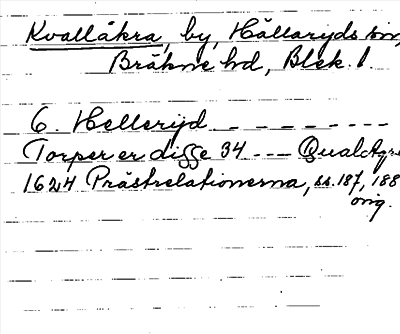 Kvallåkra, by, Hällaryds sn,
Bräkne hd, Blek. l.
6. Hellerijd - - - - - - - -
Torper er disse 34 --- Qualagre
1624 Prästrelationerna, ss. 187, 188
orig.